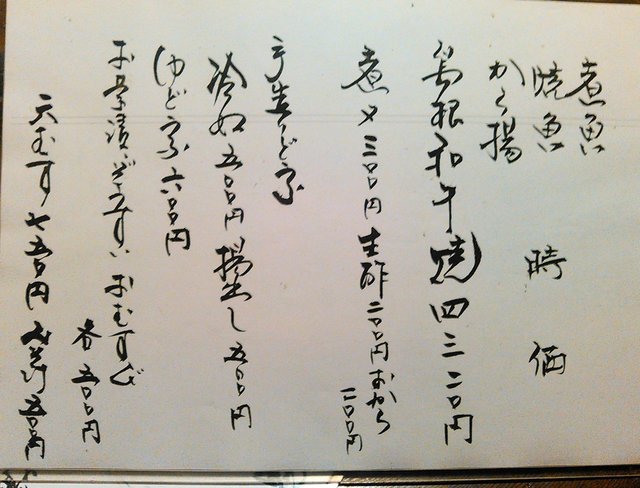 煮魚
焼魚 時価
から揚
島根和牛焼 四三二〇円
煮〆 三〇〇円 生酢 二〇〇円 おから
二〇〇円
手造り
冷奴 五〇〇円 揚出し 五〇〇円
六〇〇円
お茶漬 ぞうすい おむすび
各 五〇〇円
天むす 七五〇円